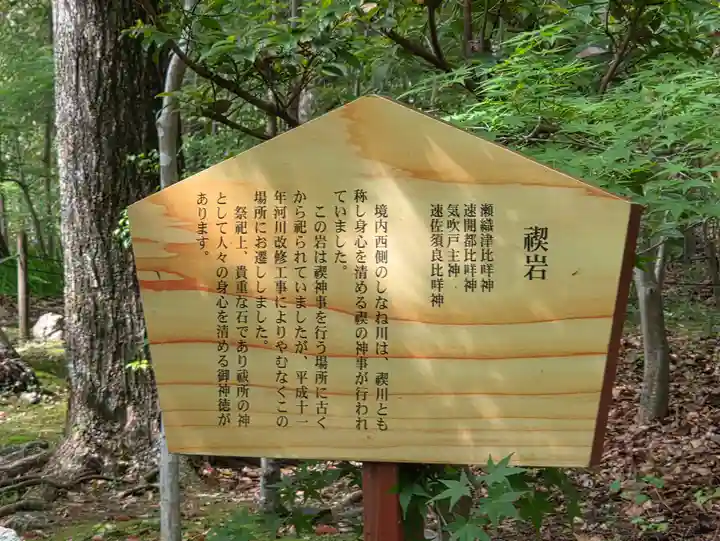 禊岩
瀬織津比咩神
速開都比咩神
気吹戸主神
速佐須良比咩神
境内西側のしなね川は、禊川とも
称し身心を清める禊の神事が行われ
ていました。
この岩は禊神事を行う場所に古く
から祀られていましたが、平成十一
年河川改修工事によりやむなくこの
場所にお遷ししました。
祭祀上、貴重な石であり祓所の神
として人々の身心を清める御神徳が
あります。